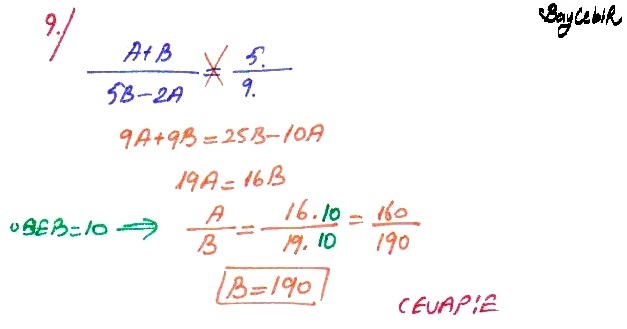 BayCebiR
9./
A+B / 5B-2A = 5. / 9.
9A+9B=25B-10A
19A=16B
OBEB=10 → A/B = 16.10/19.10 = 160/190
B=190
CEVAP:E